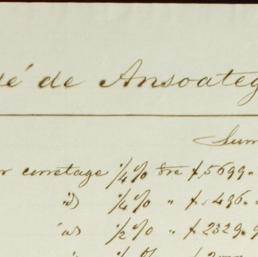 sé de Ansoateg
Sum
r corretage ¼% Sre £5699.
id ¼% " £436.
id ½% " £2329.9